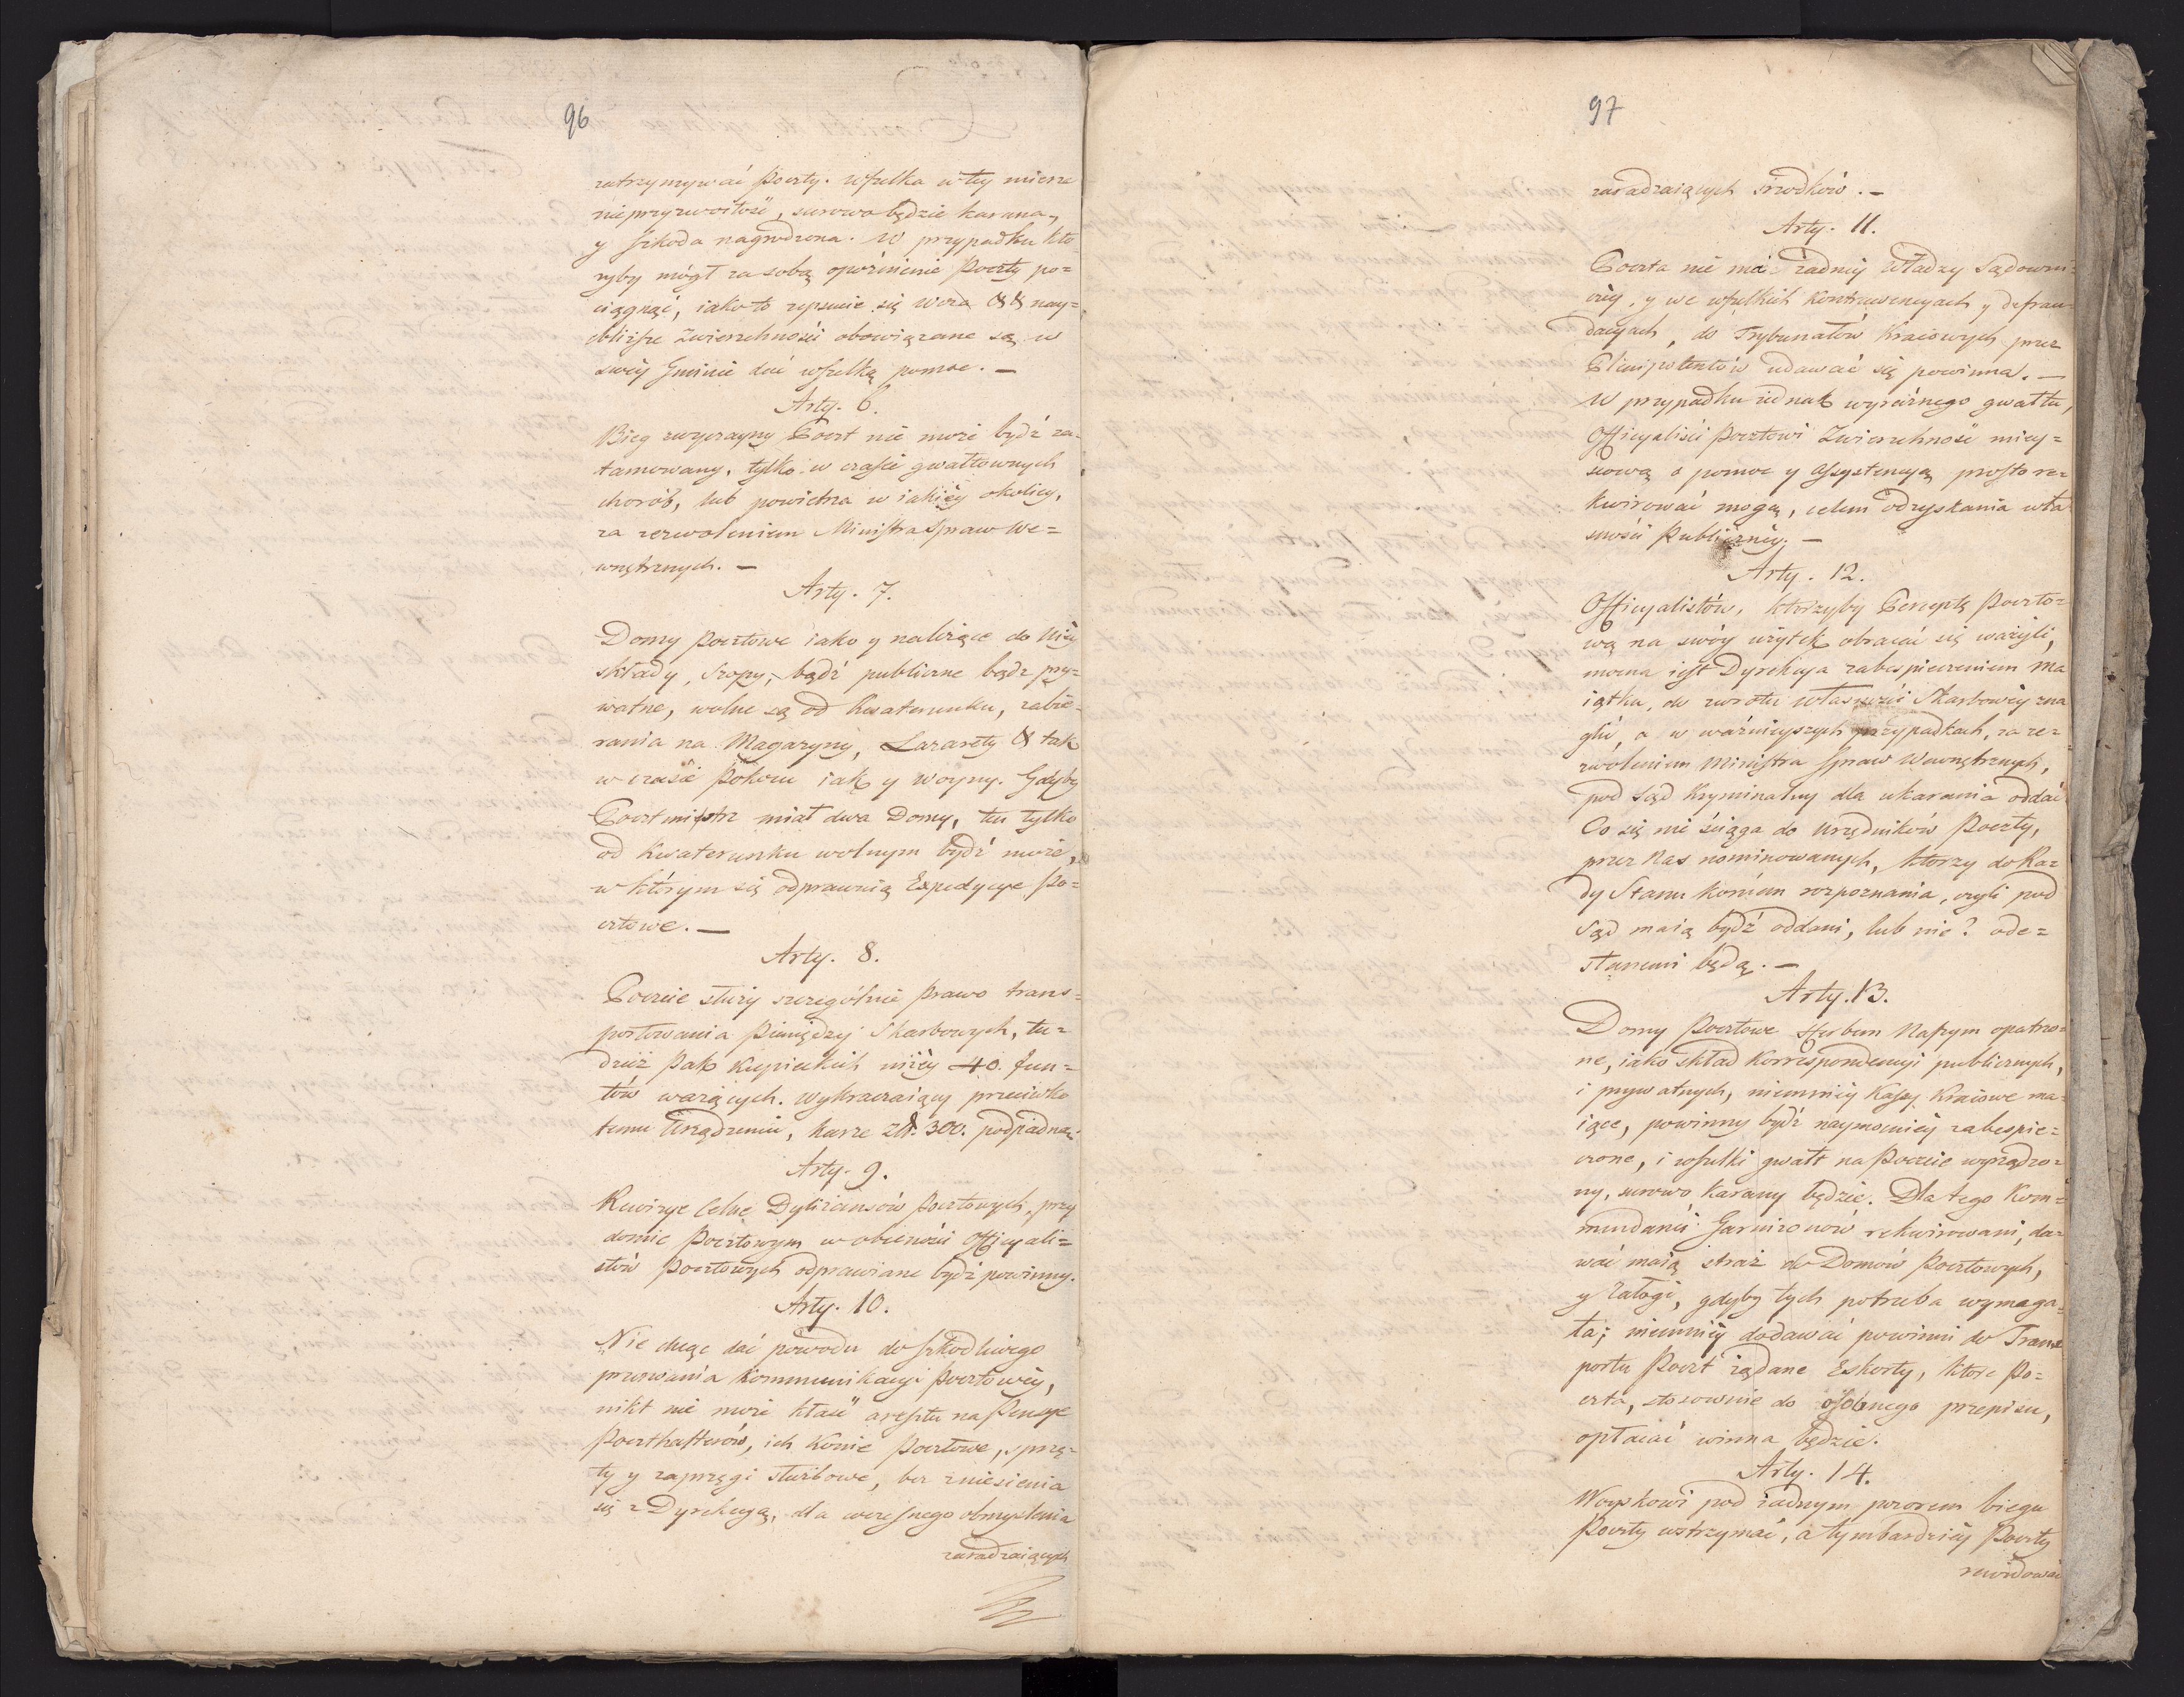 96
zatrzymywać Poczty. Wszelka w tey mierze
nieprzyzwoitość, surowo będzie karana,
y szkoda nagrodzona. W przypadku któ
ryby mógł za sobą opóźnienie Poczty po=
ciągnąć, iako to zepsucie się woza && nay=
bliższe Zwierzchności obowiązane są w
swéy Gminie dać wszelką pomoc. —
Arty. 6.
Bieg zwyczayny Poczt nie może bydź za=
tamowany, tylko w czasie gwałtownych
chorób, lub powietrza w iakiéy okolicy,
za zezwoleniem Ministra Spraw We=
wnętrznych. —
Arty. 7.
Domy Pocztowe iako y należące do Niéy
składy, Szopy, bądź publiczne bądź pry=
watne, wolne są od kwaterunku, zabie=
rania na Magazyny, Lazarety & tak
w czasie Pokoiu iak y woyny. Gdyby
Pocztmistrz miał dwa Domy, ten tylko
od kwaterunku wolnym bydź może,
w którym się odprawuią Expedycye Po=
cztowe. —
Arty. 8.
Poczcie służy szczególnie Prawo trans=
portowania Pieniędzy Skarbowych, tu=
dzież Pak Kupieckich niżéy 40. fun=
tów ważących. Wykraczaiący przeciwko
temu Urządzeniu, karze Zł. 300. podpadnie.
Arty. 9.
Rewizye Celne Dyliżansów Pocztowych, przy
domie Pocztowym w obecności Officyali=
stów Pocztowych odprawiane bydź powinny.
Arty. 10.
Nie chcąc dać powodu do szkodliwego
przerwania Kommunikacyi Pocztowéy,
nikt nie może kłaść aresztu na Pensye
Poczthalterów, ich Konie Pocztowe, sprzę=
ty y zaprzęgi służbowe, bez zniesienia
się z Dyrekcyą, dla wczesnego obmyślenia
zaradzaiących
97
zaradzaiących srzodków. —
Arty. 11.
Poczta nie ma żadnéy władzy Sądowni=
czéy, y we wszelkich Kontrawencyach y defrau=
dacyach, do Trybunałów Kraiowych przez
Plenipotentów udawać się powinna. —
W przypadku iednak wyraźnego gwałtu,
Officyaliści Pocztowi Zwierzchność miey=
scową o pomoc y Assystencyą prosto re=
kwirować mogą, celem odzyskania wła
sności Publicznéy. —
Arty. 12.
Officyalistów, którzyby Perceptę Poczto=
wą na swóy użytek obracać się ważyli,
mocna iest Dyrekcya zabespieczeniem Ma
iątku, do zwrotu własności Skarbowéy zna
glić, a w ważnieyszych przypadkach, za ze=
zwoleniem Ministra Spraw Wewnętrznych,
pod Sąd Kryminalny dla ukarania oddać
Co się nie ściąga do Urzędników Poczty,
przez Nas nominowanych, którzy do Ra=
dy Stanu koncem rozpoznania, czyli pod
Sąd maią bydź oddani, lub nie? ode=
słanemi będą. —
Arty. 13.
Domy Pocztowe Herbem Naszym opatrzo=
ne, iako skład Korrespondencyi publicznych,
i prywatnych, niemniéy Kassy Kraiowe ma=
iące, powinny bydź naymocniéy zabespie=
czone, i wszelki gwałt na Poczcie wyrządzo=
ny, surowo karany będzie. Dla tego Kom=
mendanci Garnizonów rekwirowani, da=
wać maią straż do Domów Pocztowych,
y Załogi, gdyby tych potrzeba wymaga=
ła; niemniéy dodawać powinni do Trans
portu Poczt żądane Eskorty, które Po=
czta, stosownie do osobnego przepisu,
opłacać winna będzie.
Arty. 14.
Woyskowi pod żadnym pozorem biegu
Poczty wstrzymać, a tymbardziéy Poczty
rewidować